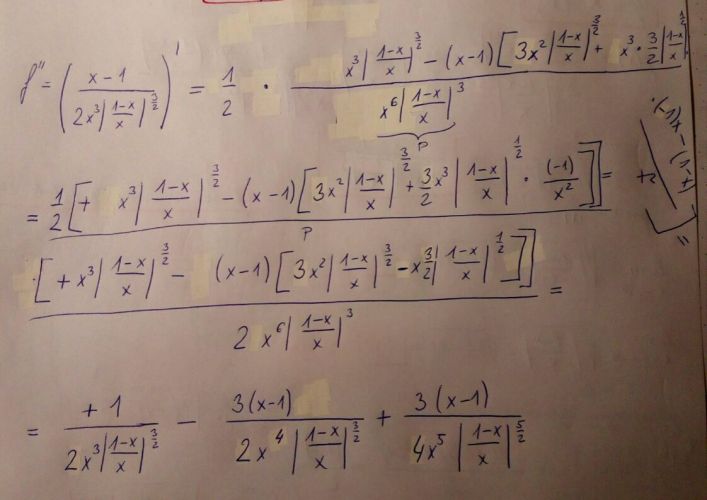 f'' = ( x-1 / 2x³|1-x/x|^(3/2) )' = 1/2 · x³|1-x/x|^(3/2) - (x-1)[3x²|1-x/x|^(3/2) + x³·3/2|1-x/x|^(1/2)· / x⁶|1-x/x|³
P
(-1)x - (1-x)
x²
= 1/2 [+ x³|1-x/x|^(3/2) - (x-1)[3x²|1-x/x|^(3/2) + 3/2 x³|1-x/x|^(1/2) · (-1)/x²]] / P =
·[+x³|1-x/x|^(3/2) - (x-1)[3x²|1-x/x|^(3/2) - x 3/2|1-x/x|^(1/2)]] / 2x⁶|1-x/x|³ =
= +1 / 2x³|1-x/x|^(3/2) - 3(x-1) / 2x⁴|1-x/x|^(3/2) + 3(x-1) / 4x⁵|1-x/x|^(5/2)